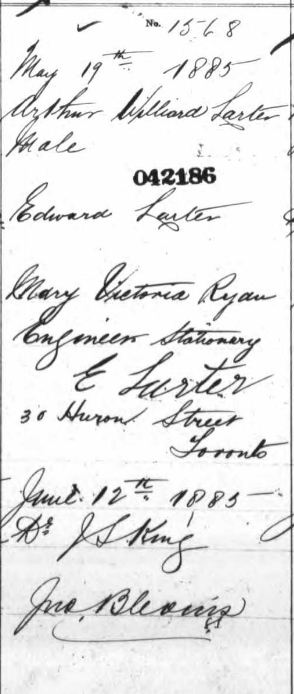 No. 1568
May 19th 1885
Arthur Williard Larter
Male
042186
Edward Larter
Mary Victoria Ryan
Engineer Stationary
E Larter
30 Huron Street
Toronto
June 12th 1885
Dr J S King
Jno. Blevins